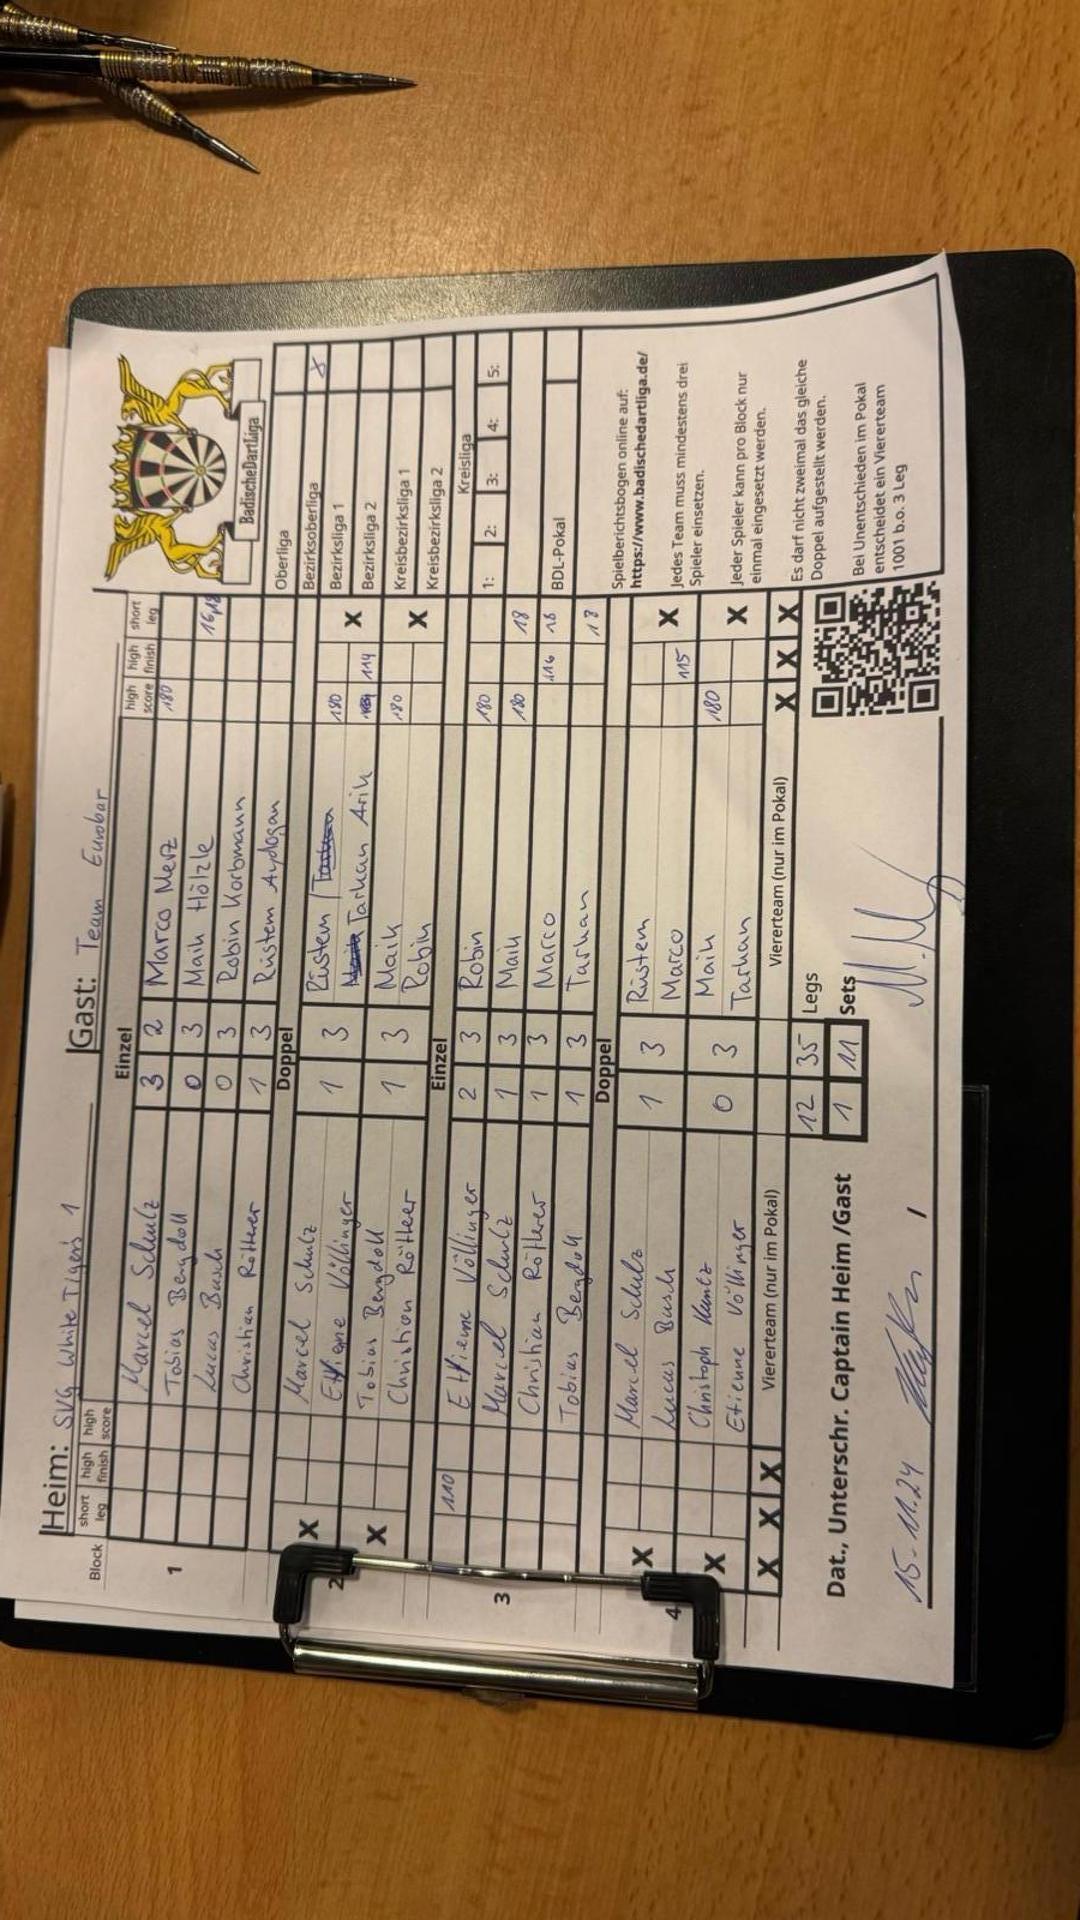 Heim: SVG White Tigers 1 Gast: Team Eurobar
BadischeDartLiga
Block short leg high finish high score Einzel high score high finish short leg
1
Marcel Schulz 3 2 Marco Merz 180
Tobias Bergdoll 0 3 Maik Hölzle
Lucas Busch 0 3 Robin Korbmann 16,18
Christian Rötterer 1 3 Rüstem Aydogan
Doppel
2
X Marcel Schulz Rüstem / 180
Etienne Völlinger 1 3 Tarkan Arik 114 X
X Tobias Bergdoll Maik 180
Christian Rötterer 1 3 Robin X
Einzel
3
110 Etienne Völlinger 2 3 Robin 180
Marcel Schulz 1 3 Maik 180 18
Christian Rötterer 1 3 Marco 116 18
Tobias Bergdoll 1 3 Tarkan 18
Doppel
4
X Marcel Schulz Rüstem X
Lucas Busch 1 3 Marco 115
X Christoph Kuntz Maik 180 X
Etienne Völlinger 0 3 Tarkan
X X X Viererteam (nur im Pokal) Viererteam (nur im Pokal) X X X
12 35 Legs
1 11 Sets
Dat., Unterschr. Captain Heim /Gast
15.11.24 /
Oberliga
Bezirksoberliga x
Bezirksliga 1
Bezirksliga 2
Kreisbezirksliga 1
Kreisbezirksliga 2
Kreisliga
1: 2: 3: 4: 5:
BDL-Pokal
Spielberichtsbogen online auf:
https://www.badischedartliga.de/
Jedes Team muss mindestens drei
Spieler einsetzen.
Jeder Spieler kann pro Block nur
einmal eingesetzt werden.
Es darf nicht zweimal das gleiche
Doppel aufgestellt werden.
Bei Unentschieden im Pokal
entscheidet ein Viererteam
1001 b.o. 3 Leg